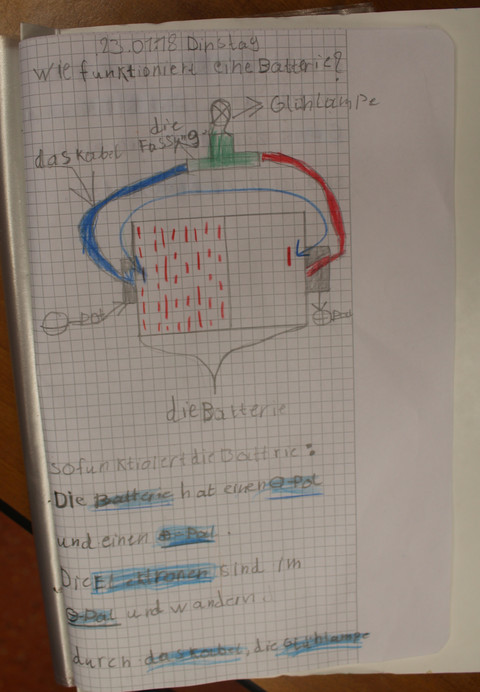 23.01.18 Dinstag
Wie funktioniert eine Batterie?
Glühlampe
die
Fassung
das Kabel
⊖-Pol
⊕-Pol
die Batterie
So funktioniert die Battrie:
-Die Batterie hat einen ⊖-Pol
und einen ⊕-Pol.
Die Elektronen sind im
⊖-Pol und wandern
durch das Kabel, die Glühlampe